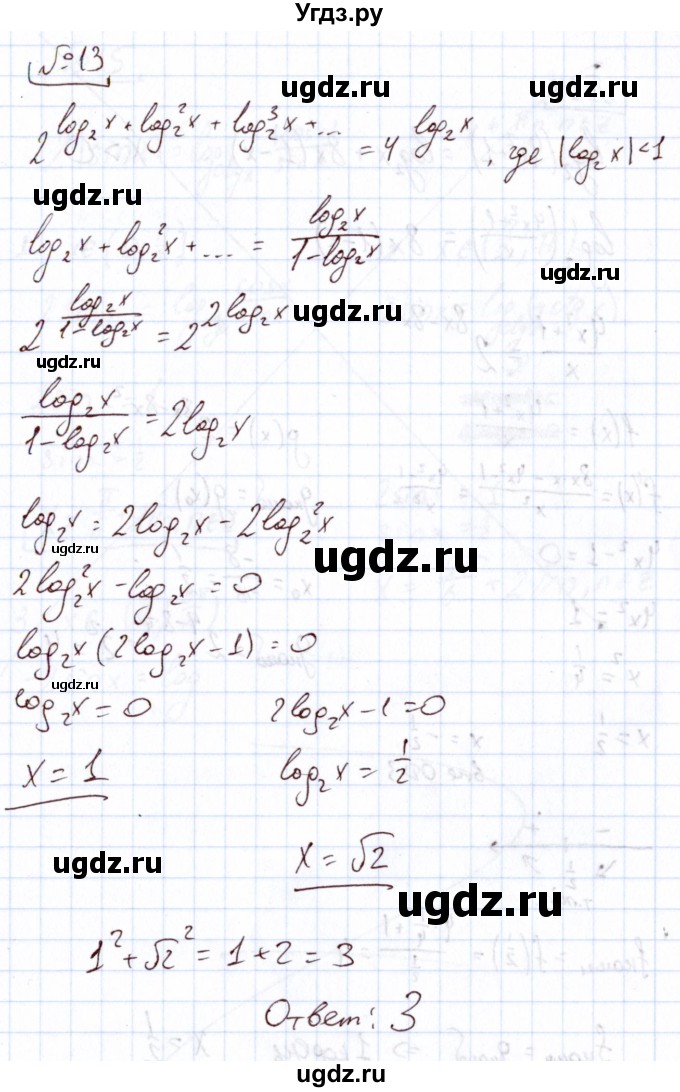 Угдз.ру
№13
ugdz.ru
ugdz.ru
2^(log₂x + log₂²x + log₂³x + ...) = 4^(log₂x), где |log₂x|<1
ugdz.ru
log₂x + log₂²x + ... = log₂x / (1-log₂x)
ugdz.ru
2^(log₂x / (1-log₂x)) = 2^(2log₂x)
ugdz.ru
ugdz.ru
log₂x / (1-log₂x) = 2log₂x
ugdz.ru
log₂x = 2log₂x - 2log₂²x
ugdz.ru
ugdz.ru
2log₂²x - log₂x = 0
log₂x (2log₂x - 1) = 0
ugdz.ru
log₂x = 0 2log₂x - 1 = 0
x = 1 log₂x = 1/2
ugdz.ru
x = √2
ugdz.ru
1² + √2² = 1 + 2 = 3
Ответ: 3